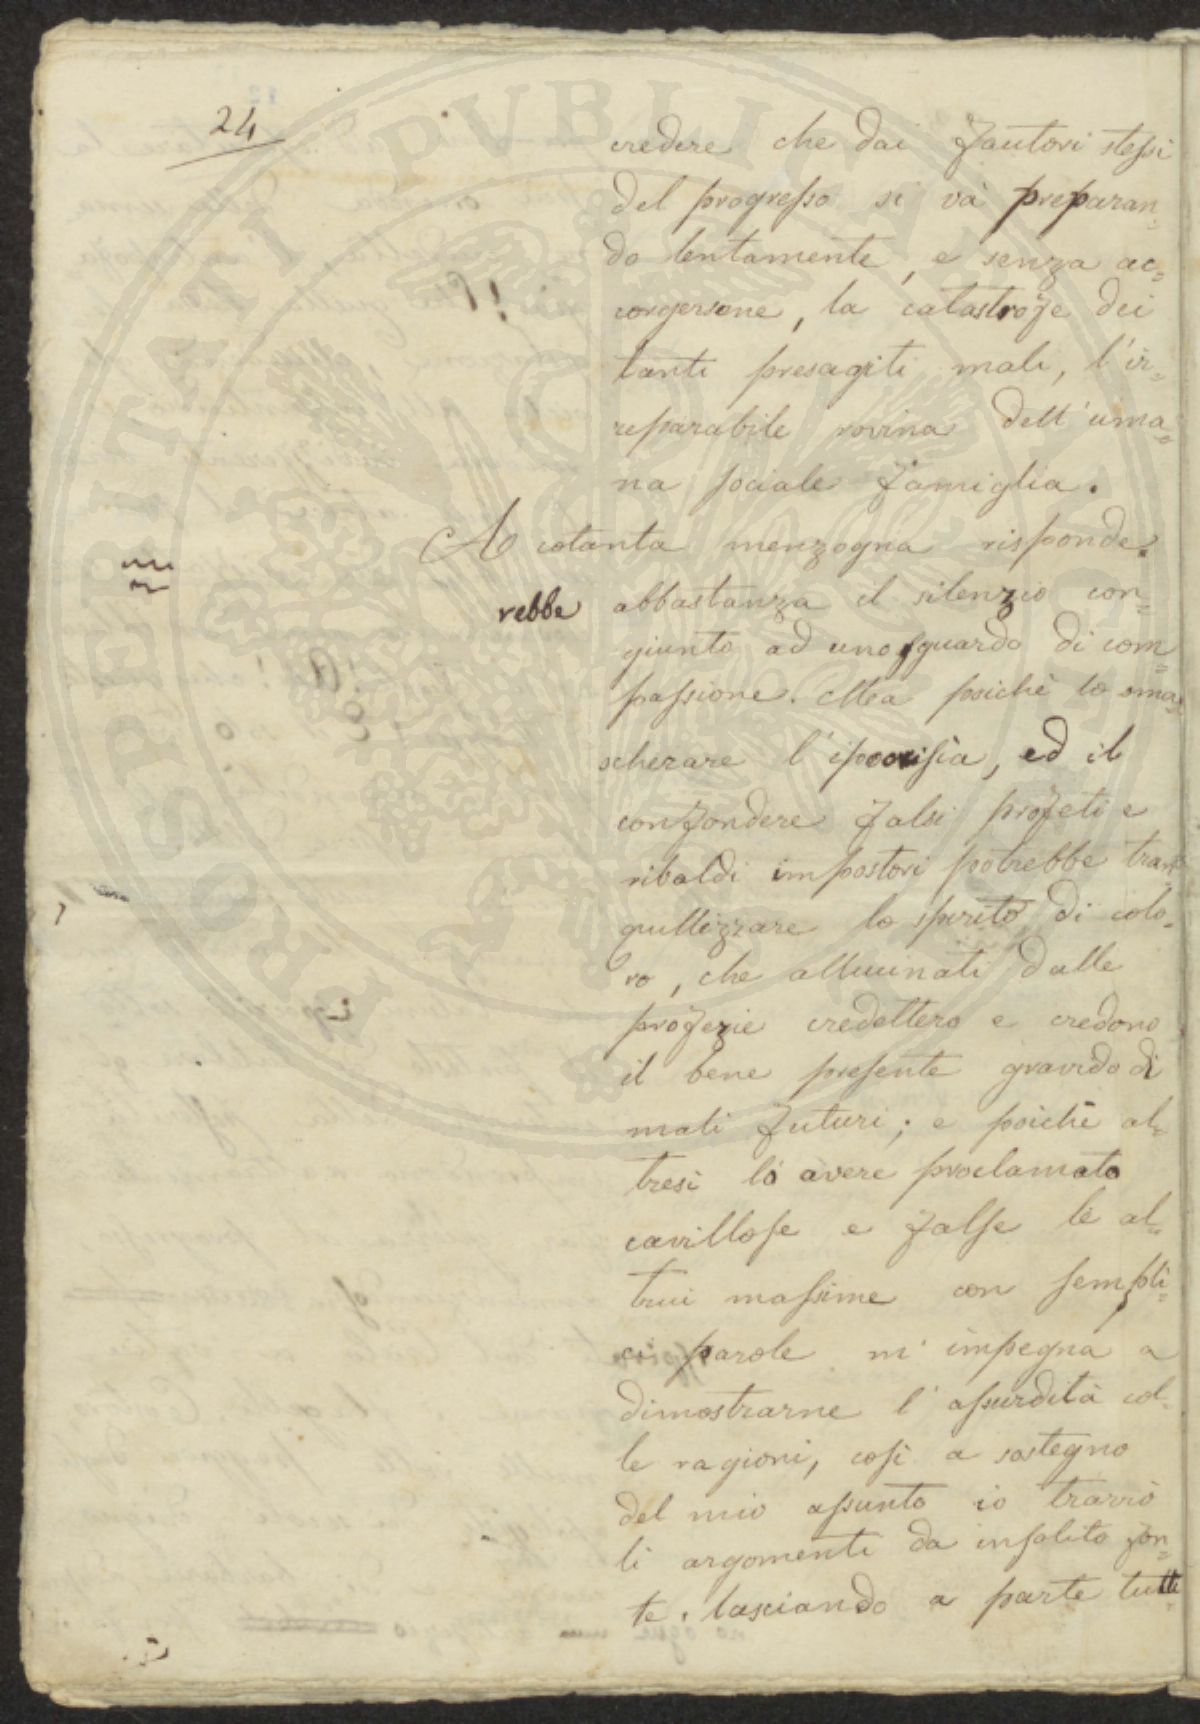 24
credere che dai fautori stessi
del progresso si và preparan=
do lentamente, e senza ac=
corgersene, la catastrofe dei
tanti presagiti mali, l'ir=
reparabile rovina dell'uma=
na sociale famiglia.
A cotanta menzogna risponde=
rebbe abbastanza il silenzio con=
giunto ad uno sguardo di com=
passione. Ma poichè lo sma=
scherare l'ipocrisia, ed il
confondere falsi profeti e
ribaldi impostori potrebbe tran=
quillizzare lo spirito di colo=
ro, che allucinati dalle
profezie credettero e credono
il bene presente gravido di
mali futuri; e poichè al=
tresì lo avere proclamato
cavillose e false le al=
trui massime con sempli=
ci parole m'impegna a
dimostrarne l'assurdità col=
le ragioni, così a sostegno
del mio assunto io trarrò
li argomenti da insolito fon=
te, lasciando a parte tutte
PROSPERITATI PVBLICAE